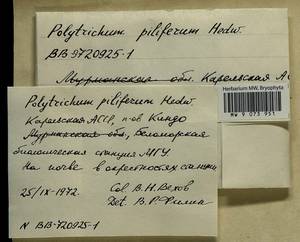 Polytrichum piliferum Hedw.
BB-9720925-1
Мурманская обл. Карельская А
Herbarium MW, Bryophyta
MW 9 073 951
Polytrichum piliferum Hedw.
Карельская АССР, п-ов Киндо
Мурманская обл, Беломорская
биологическая станция МГУ
На почве в окрестностях станции
25/IX-1972. Col. В.Н.Вехов
Det. В.Р.Филин
N BB-720925-1